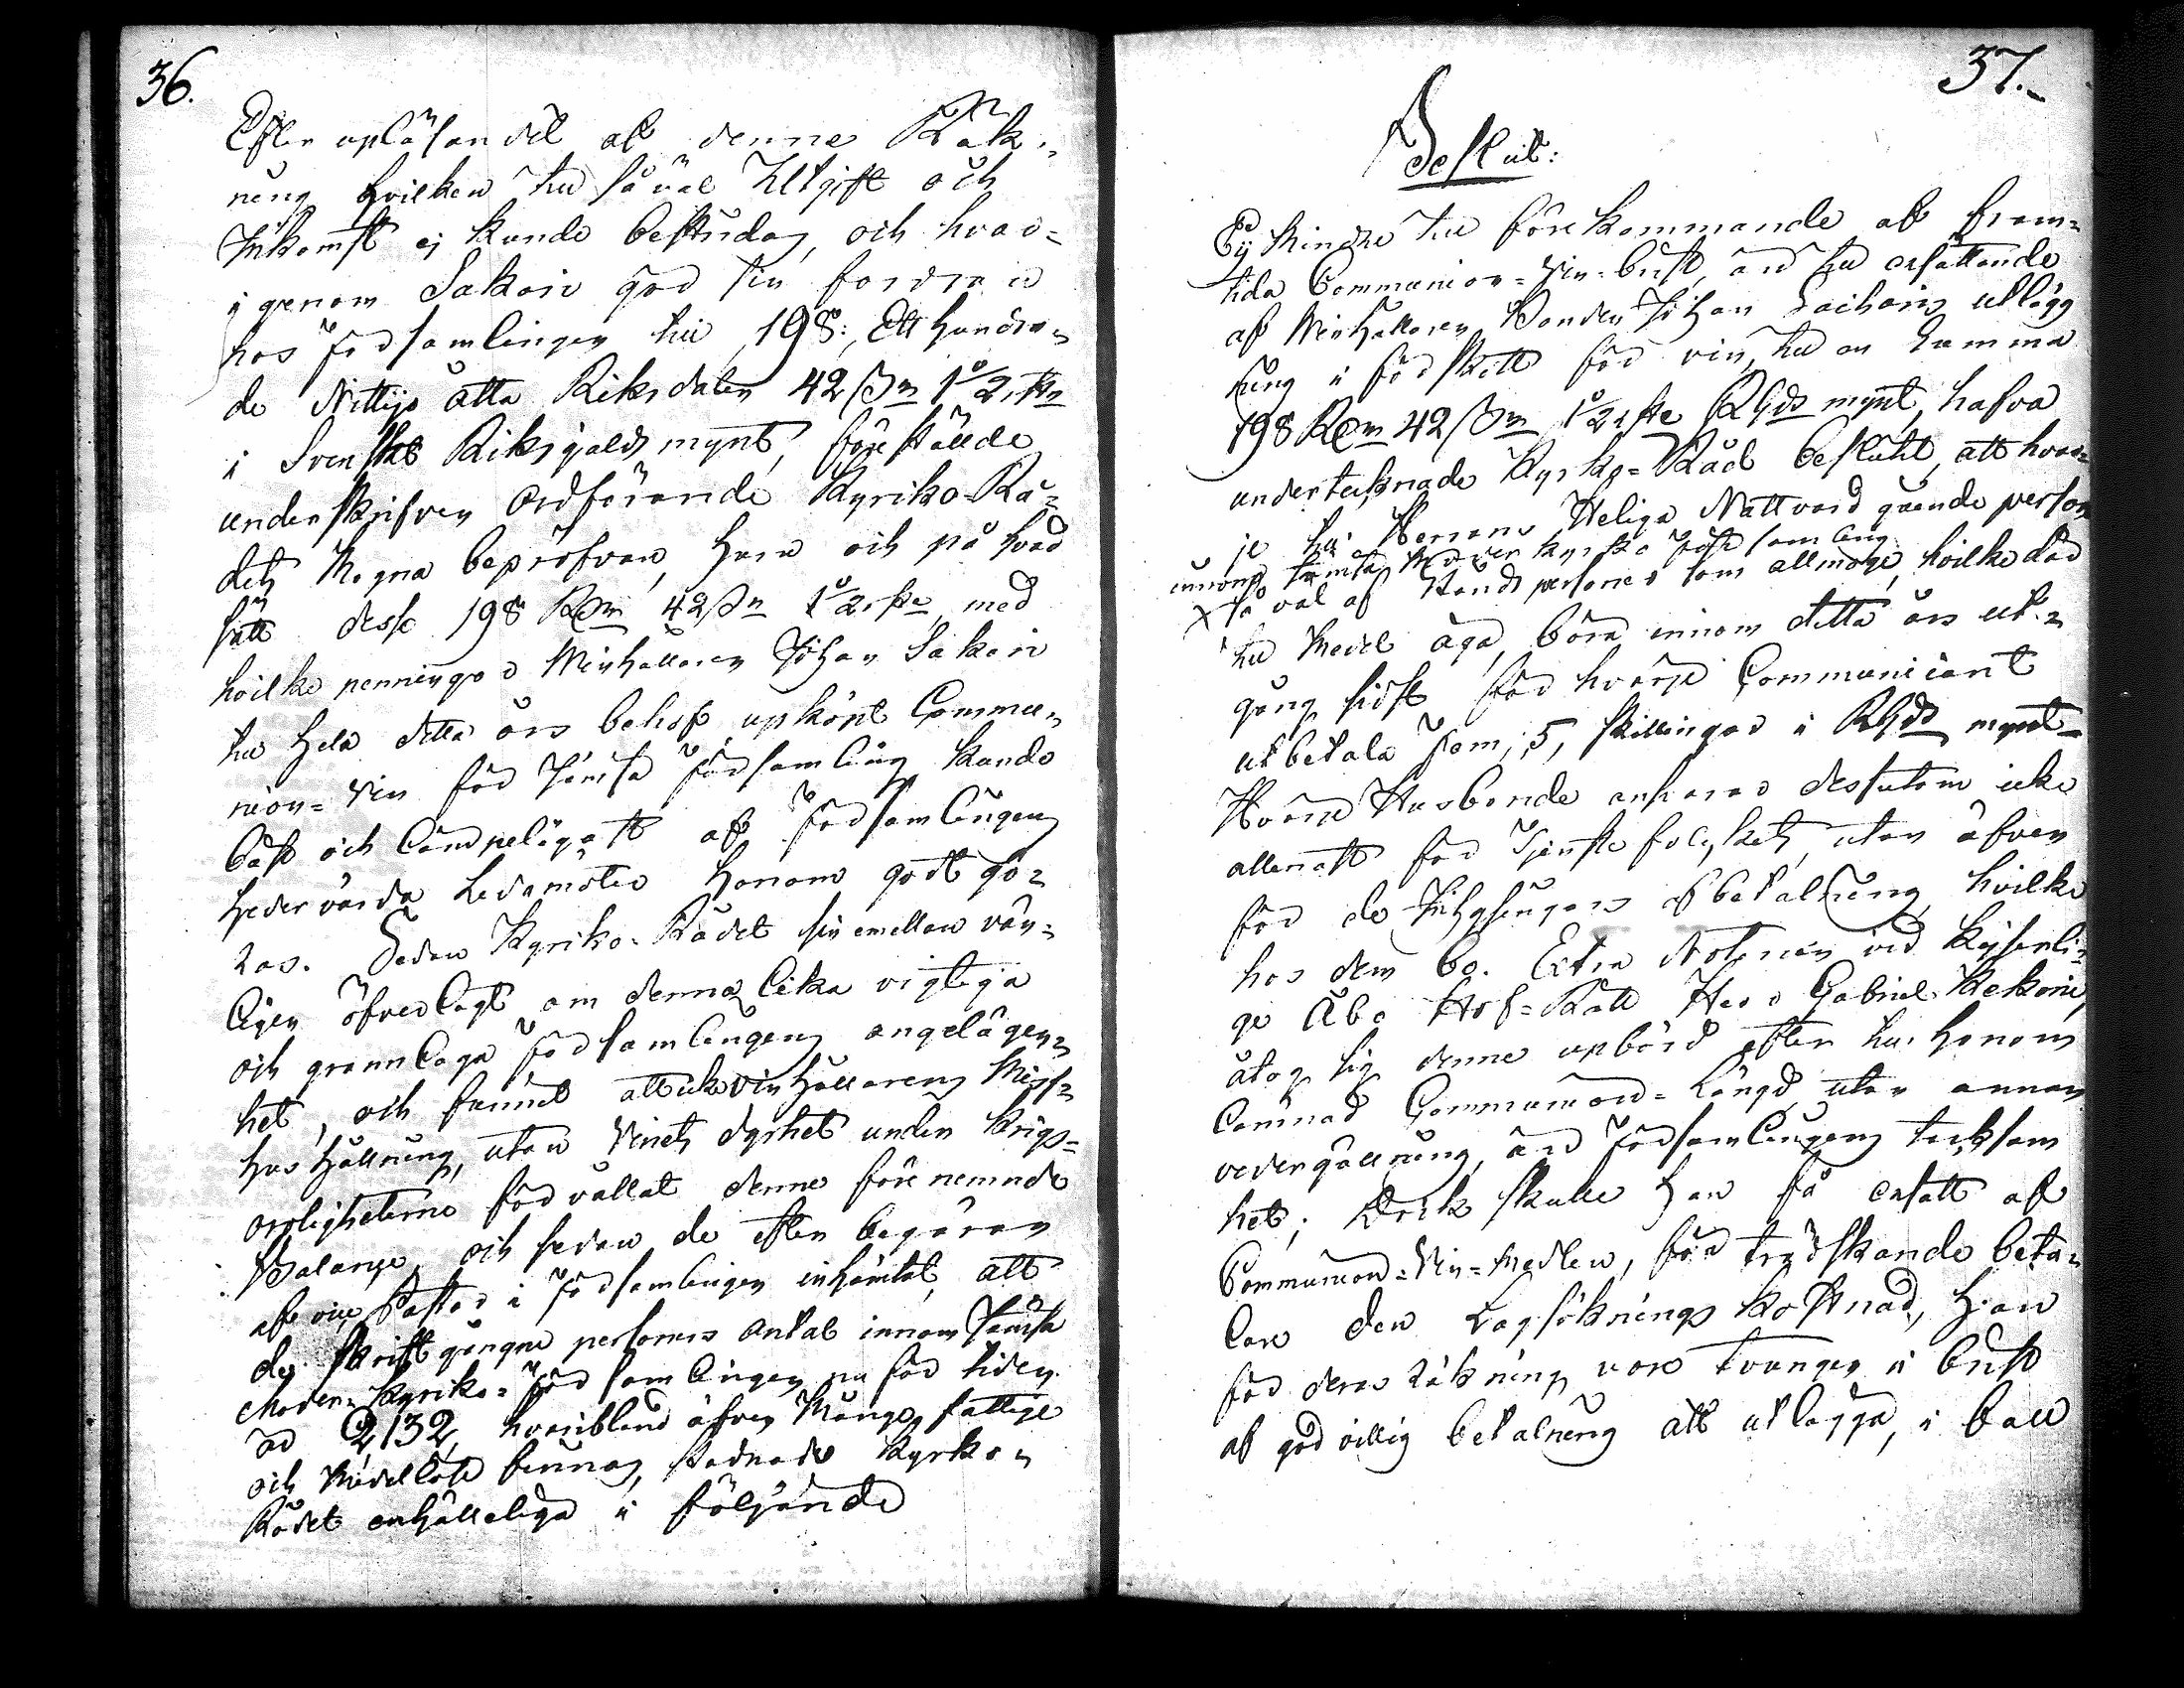 36.
Efter upläsandet af denne Räk-
ning hvilken till såväl Utgift och
Inkomst ej kunde bestridas, och hvar-
igenom Sakari god sin fordran
hos Församlingen till 198: Ett hundra-
de Nittijo åtta Riksdaler 42 ßr 10/2 rst
i Svenskt Riksgälds mynt, föreställde
underskrifven Ordförande Kyrko-Rå-
dets Mogna bepröfvan, huru och på hvad
sätt desse 198 RDr 42 ßr 10/2 rst, med
hvilka penningar Winhållaren Johan Sakari
till hela detta års behof upköpt Commu-
nion-Vin för Jämsä Församling kunde
bäst och lämpeligast af Församlingens
hedervärda Ledamöter honom godt gö-
ras. Sedan Kyrko-Rådet sin emellan vän-
ligen öfverlagt om denna lika vigtiga
och grannlaga Församlingens angelägen-
het, och funnit att icke Vinhållarens Miss-
hushållning, utan Vinets dyrhet under krigs-
oroligheterne förvållat denne förenemnde
Balance, och sedan de efter begäran
af vice Pastor i Församlingen inhämtat, att
de skriftgångne personers Antal innom Jämsä
Moder-Kyrko-Församlingen nu för tiden
är 2,132, hvaribland äfven Månge fattige
och Medellöse finnas, stadnade Kyrko-
Rådet enhälleligen i följande
37.
Beslut:
Til mindre till förekommande af fram-
tida Communion-Vin-brist, än till ersättande
af Winhållaren Bonden Johan Sacharis utlägg
ning i förskott för vin, till en Summa
198 RDr 42 ßr 10/2 rst RGds mynt, hafva
undertecknade Kyrko-Råd beslutit, att hvar-
je till Herrans Heliga Nattvard gående person
innom Jämsä Moder kyrko Församling
x så väl af Stånds personer som allmoge, hvilke där
till Medel äga, böra innom detta års ut-
gång sidst för hvarje Communicant
utbetala fem, 5, skillingar i RGds mynt
Hvarje Husbonde ansvarar dessutom icke
allenast för Tjenstefolkets, utan äfven
för de Inhysingars betalning, hvilke
hos dem bo. Extra Notarien vid Kejserli-
ge Åbo Hof-Rätt Herr Gabriel Kekoni,
åtog sig denne upbörd efter till honom
lämnad Communion-Längd utan annan
vedergällning, än Församlingens tacksam
het; Dock skulle han få ersatt af
Communion-Vin-Medlen, för tredskande beta-
lare den Lagsöknings kostnad, han
för deras räkning vore tvungen i brist
af godvillig betalning att utlägga, i fall